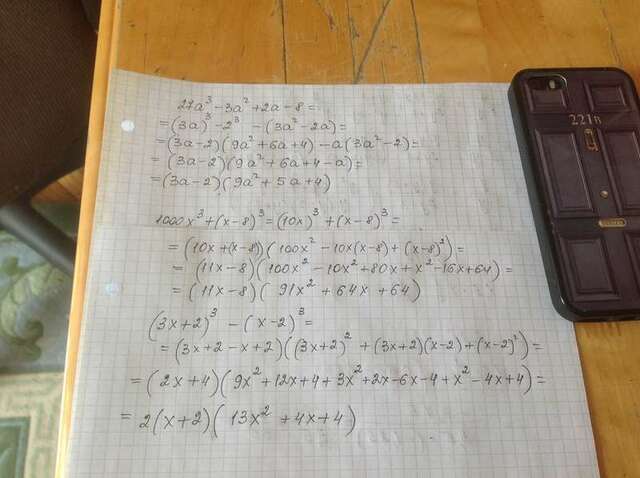 27a³ - 3a² + 2a - 8 =
= (3a)³ - 2³ - (3a² - 2a) =
= (3a-2)(9a² + 6a + 4) - a(3a² - 2) =
= (3a-2)(9a² + 6a + 4 - a) =
= (3a-2)(9a² + 5a + 4)
1000x³ + (x-8)³ = (10x)³ + (x-8)³ =
= (10x + (x-8))(100x² - 10x(x-8) + (x-8)²) =
= (11x-8)(100x² - 10x² + 80x + x² - 16x + 64) =
= (11x-8)(91x² + 64x + 64)
(3x+2)³ - (x-2)³ =
= (3x+2-x+2)((3x+2)² + (3x+2)(x-2) + (x-2)²) =
= (2x+4)(9x² + 12x + 4 + 3x² + 2x - 6x - 4 + x² - 4x + 4) =
= 2(x+2)(13x² + 4x + 4)
221B